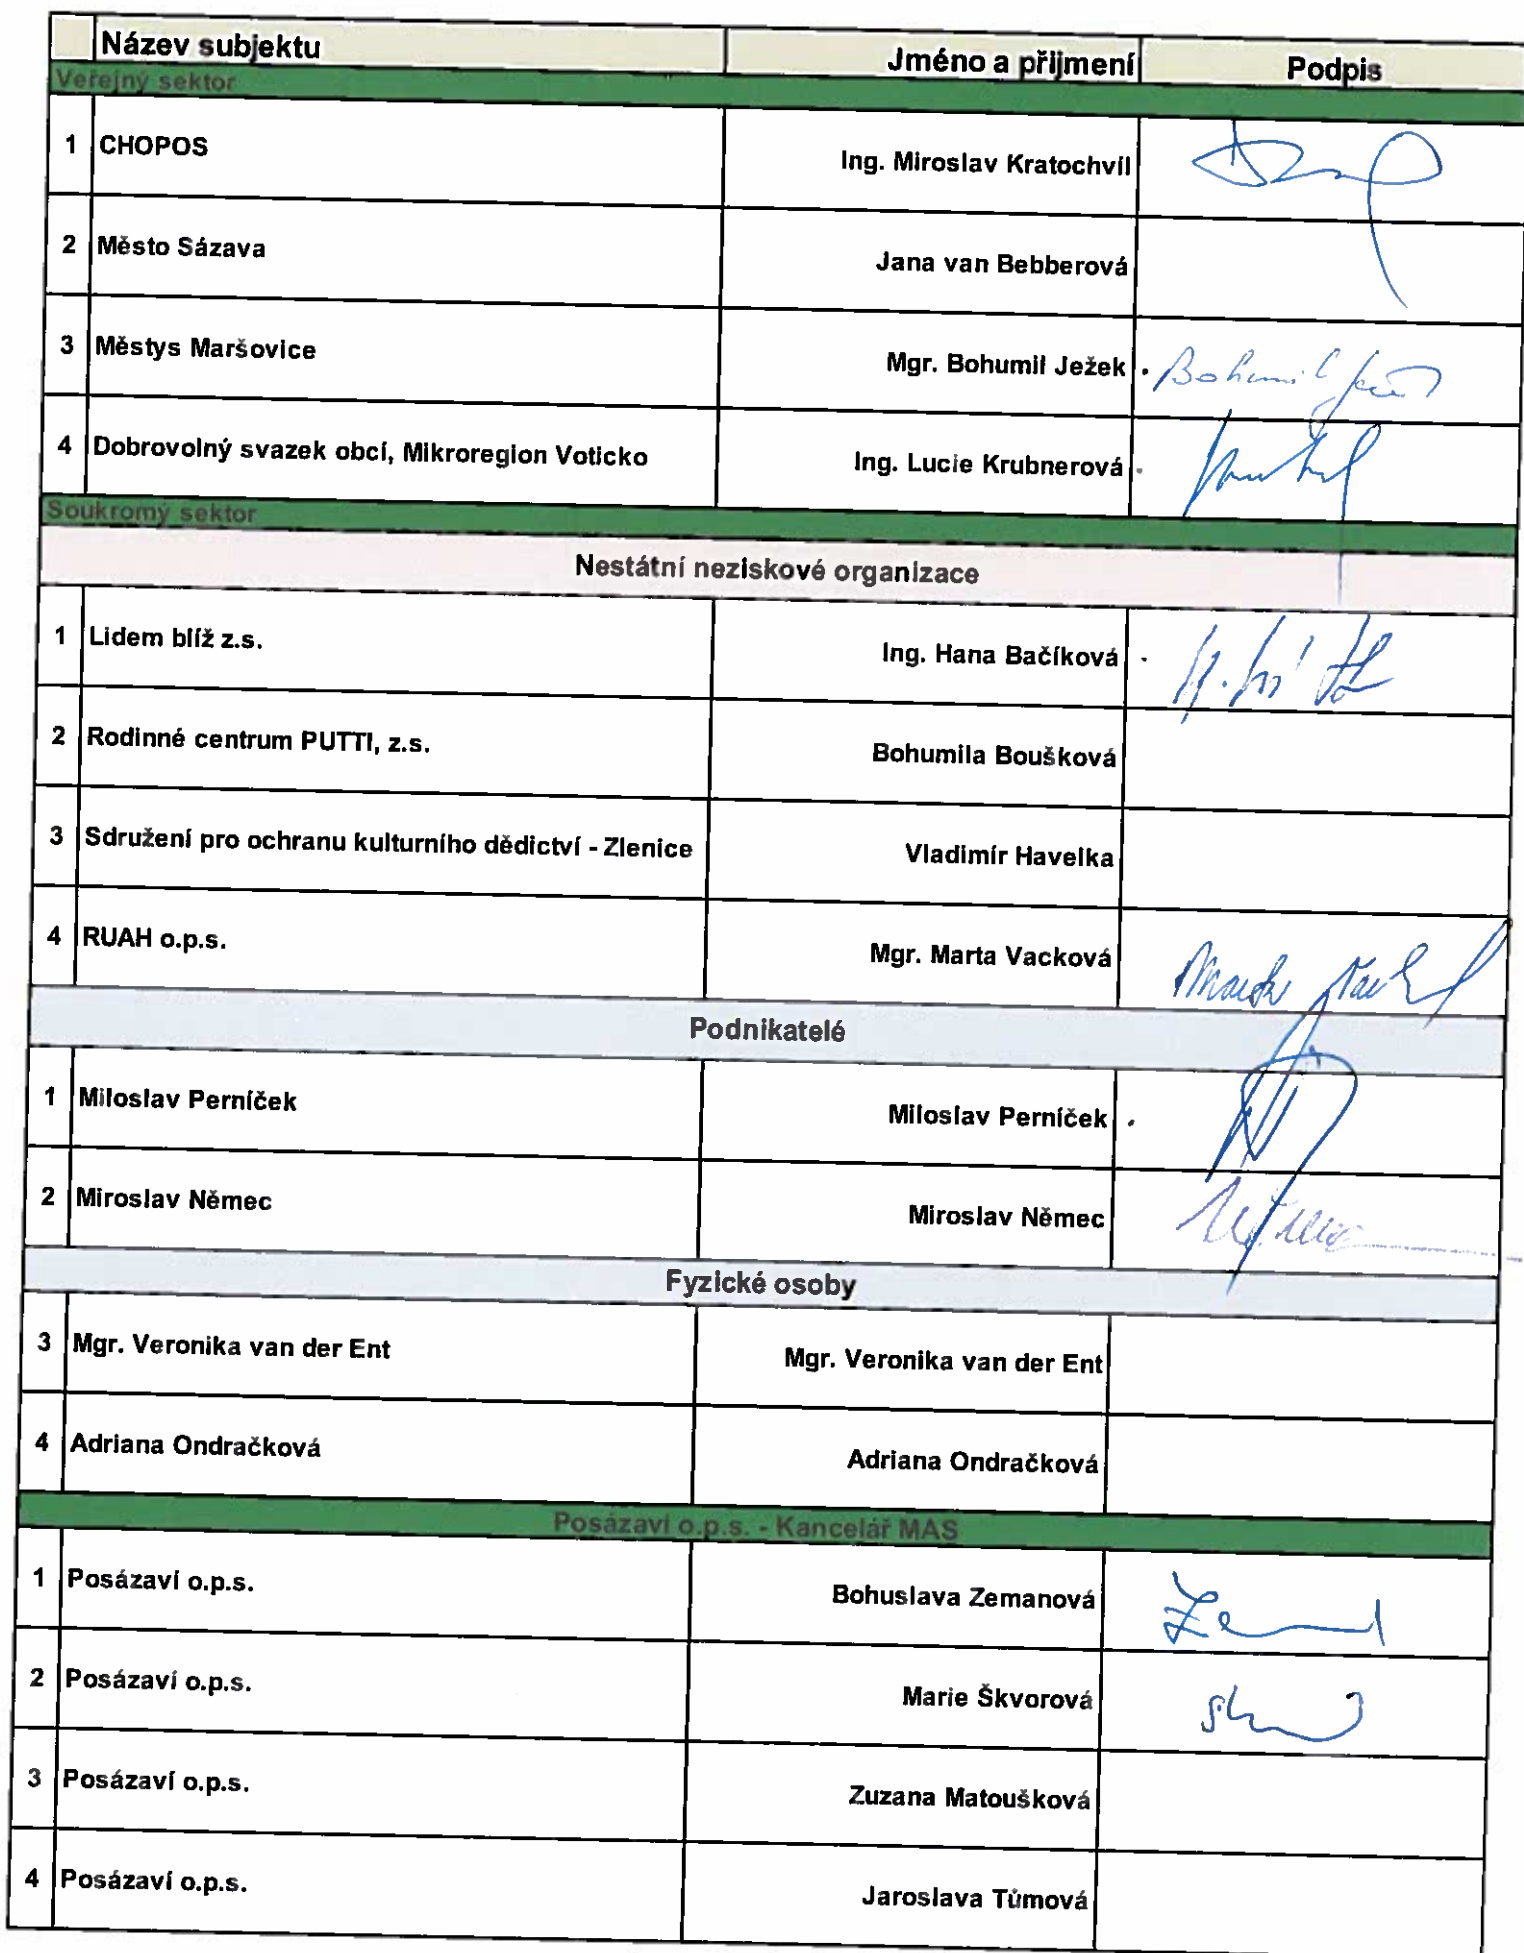 Název subjektu Jméno a přijmení Podpis
Veřejný sektor
1 CHOPOS Ing. Miroslav Kratochvíl
2 Město Sázava Jana van Bebberová
3 Městys Maršovice Mgr. Bohumil Ježek Bohumil
4 Dobrovolný svazek obcí, Mikroregion Voticko Ing. Lucie Krubnerová
Soukromý sektor
Nestátní neziskové organizace
1 Lidem blíž z.s. Ing. Hana Bačíková
2 Rodinné centrum PUTTI, z.s. Bohumila Boušková
3 Sdružení pro ochranu kulturního dědictví - Zlenice Vladimír Havelka
4 RUAH o.p.s. Mgr. Marta Vacková
Podnikatelé
1 Miloslav Perníček Miloslav Perníček
2 Miroslav Němec Miroslav Němec
Fyzické osoby
3 Mgr. Veronika van der Ent Mgr. Veronika van der Ent
4 Adriana Ondračková Adriana Ondračková
Posázaví o.p.s. - Kancelář MAS
1 Posázaví o.p.s. Bohuslava Zemanová
2 Posázaví o.p.s. Marie Škvorová
3 Posázaví o.p.s. Zuzana Matoušková
4 Posázaví o.p.s. Jaroslava Tůmová